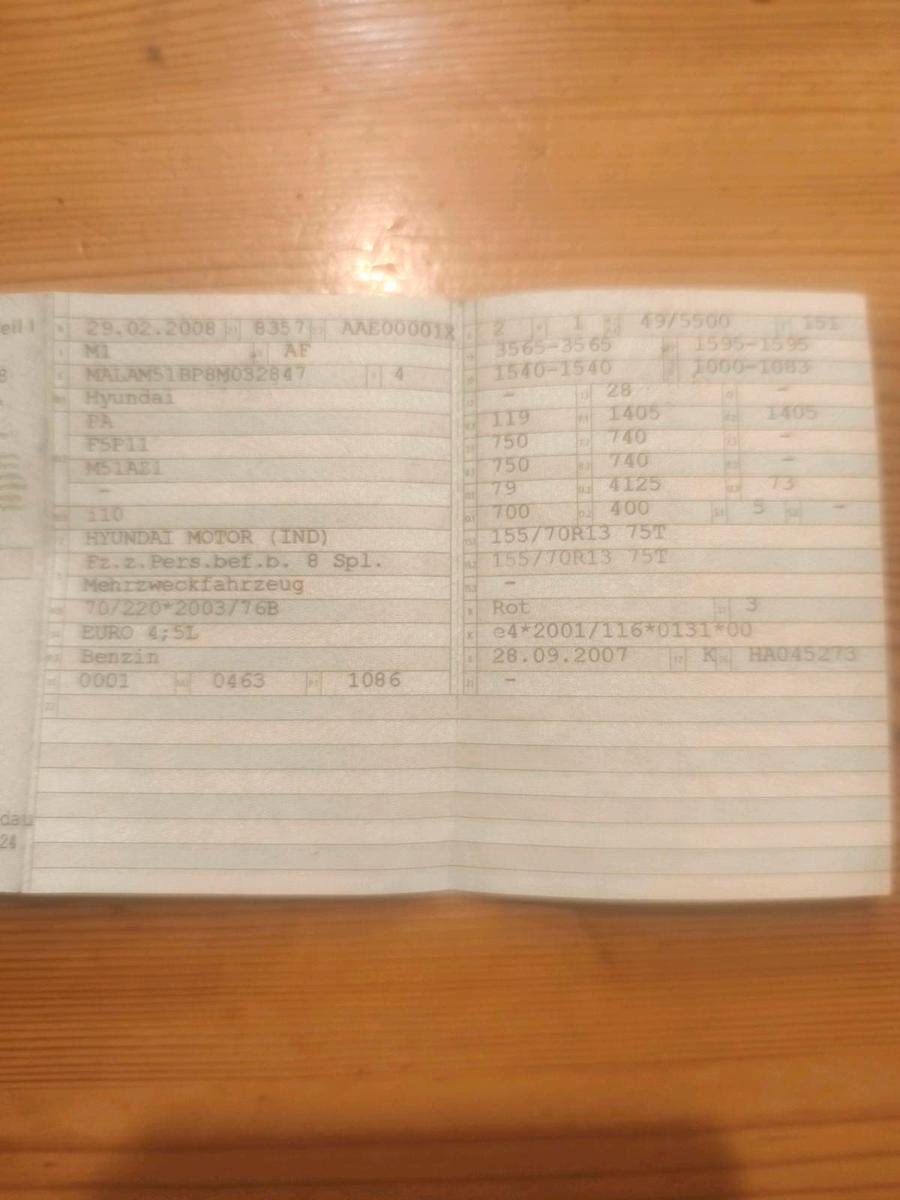 eil I
29.02.2008 8357 AAE00001X
M1 AF
MALAM51BP8M032847 4
Hyundai
PA
F5P11
M51AE1
-
i10
HYUNDAI MOTOR (IND)
Fz.z.Pers.bef.b. 8 Spl.
Mehrzweckfahrzeug
70/220*2003/76B
EURO 4;5L
Benzin
0001 0463 1086
22
2 1 49/5500 151
3565-3565 1595-1595
1540-1540 1000-1083
- 28 -
119 1405 1405
750 740 -
750 740 -
79 4125 73
700 400 5 -
155/70R13 75T
155/70R13 75T
-
Rot 3
e4*2001/116*0131*00
28.09.2007 K HA045273
-
dau
24